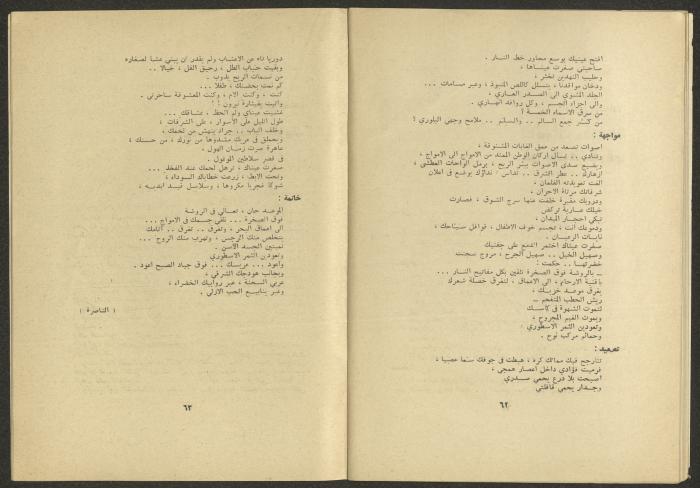 افتح عينيك يوسع محاور خط النار .
ساحبتي صفرت عينـاها ،
وحليب النهدين تخثر ،
ودخان مواقدنا ، يتسلل كاللص المنبوذ ، وعبر مسامات ...
الجلد المشوي الى الصدر العاري ،
والى اجزاء الجسم ، وكل روافد انهاري .
من سرق الاسماء الخمسة ؟
من كسر جمع السالم .. والسلم .. ملامح وجهي البلوري ؟
مواجهة :
اصوات تصعد من عمق الغابات المشنوقة ،
وتنادي .. تسأل اركان الوطن الممتد من الامواج الى الامواج ،
ويضيع صدى الاصوات ببئر الريح ، برمل الواحات العطشى ،
ازهارك .. عطر الشرق .. تداس ؛ نذرك يوضع في اعلان
الفت تعويذته الغلمان ،
شرفاتك مرتاة الاحزان ،
ودروبك مقبرة خلفت منها سرج الشوق ، فصارت
خيلك عارية تركض
تبكي احجار الميدان ،
ودموعك أنت ، تجسم خوف الاطفال ، قوافل سيناحك ،
نابات الرعيان .
صفرت عيناك اختمر الدمع على جفنيك
وصهيل الخيل .. صهيل الجرح ، مروج سجنت
خضرتها .. حكمت :
ـ بالروشة فوق الصخرة تلقين بكل مفاتيح النار ...
باقنية الارحام ، الى الاعماق ، لتغرق خصلة شعرك
يغرق موعد حزنك ،
ريش الحطب المتفحم ـ
لتموت الشهوة في كأسك
ويموت الغيم المجروح ،
وتعودين الثمر الاسطوري ؛
وحمائم مركب نوح .
تصعيد :
تتأرجح فيك مماتك كرة ، هبطت في جوفك سلما عصبيا ،
فرميت فؤادي داخل اعصار همجي ،
اصبحت بلا درع يحمي صدري
وجدار يحمي قافلتي
٦٢
دوريا تاه عن الاعشاب ولم يقدر ان يبني عشا لصغاره
وبقيت حبات الطل ، رحيق الفل ، خيالا ..
من نسمات الريح يذوب .
كم نمت بحضنك ، طفلا ...
كنت ، وكنت الام ، وكنت المعشوقة ساحرتي .
واتيت بقيثارة نيرون ! !
غشيت عيناي ولم الحظ ، عشاقك ...
طول الليل على الأسوار ، على الشرفات ،
وخلف الباب .. جراد ينهش من لحمك ،
ويحملق في عريك مشدوها من نورك ، من حسنك ،
عاهرة صرت زمان الهول ،
في قصر سلاطين الموغول .
صفرت عيناك ، ترهل لحمك عند الفخذ ...
وتحت الابط ، زرعت خطاياك السوداء ،
شوكا غجريا مكروها ، وسلاسل قيد ابديه ،
خاتمة :
الموعد حان ، تعالي في الروشة
فوق الصخرة ... نلقي جسمك في الامواج ...
الى اعماق البحر ، وتغرق .. تغرق .. آثامك
يتخلص منك الرجس ، وتهرب منك الروح ...
تميتين الجسد الآسن .
وتعودين الثمر الاسطوري
واعود ... عريسك ... فوق جياد الصبح اعود .
وبجانب هودجك الشرقي ،
عربي السحنة ، عبر روابيك الخضراء ،
وعبر ينابيع الحب الازلي .
( الناصرة )
٦٣